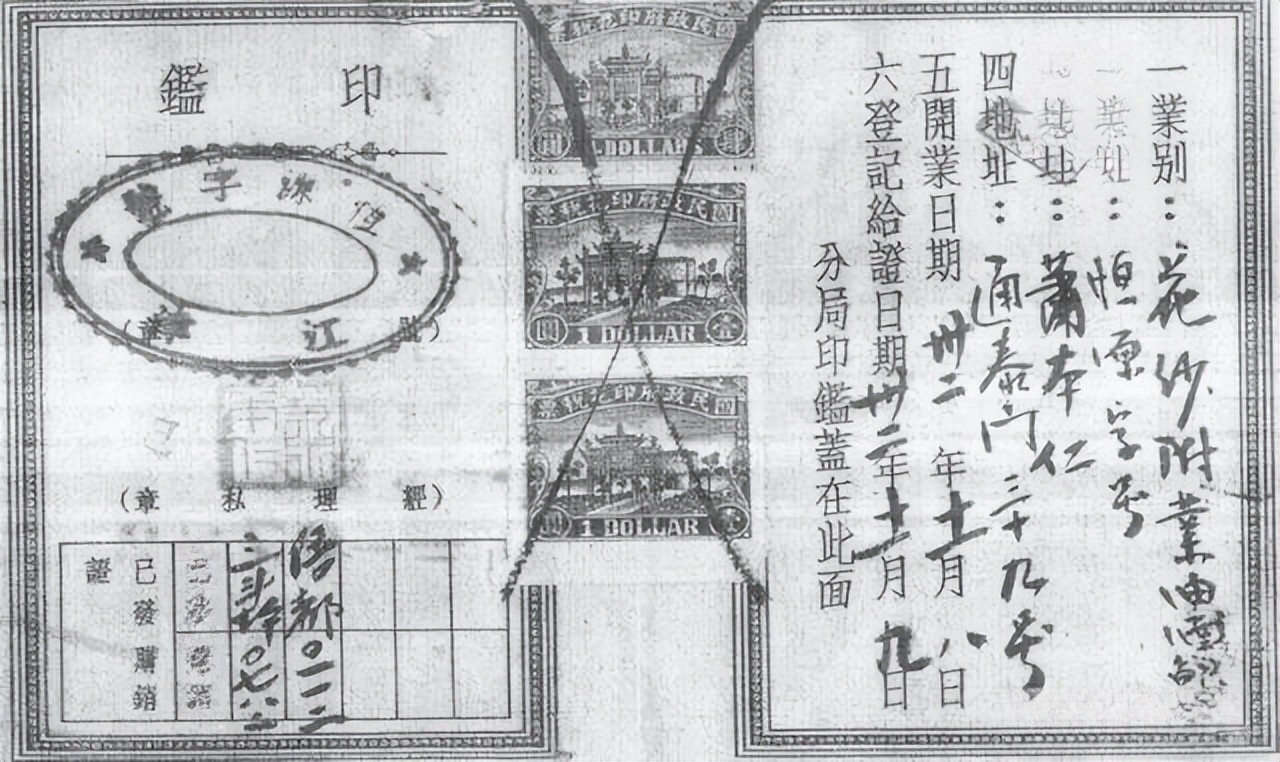 一業別：花紗附業油
業址：恒源字号
地址：蕭本仁
四地址：通泰门三十九号
五開業日期 卅二年十一月八日
六登記給證日期 卅二年十一月九日
分局印鑑蓋在此面
國民政府印花稅票
壹 圓
DOLLARS
國民政府印花稅票
圓 1 DOLLAR 壹
國民政府印花稅票
圓 1 DOLLAR 壹
印鑑
恒源字號
江
(號章)
(經理私章)
已發購銷證
〇一一二
〇七八